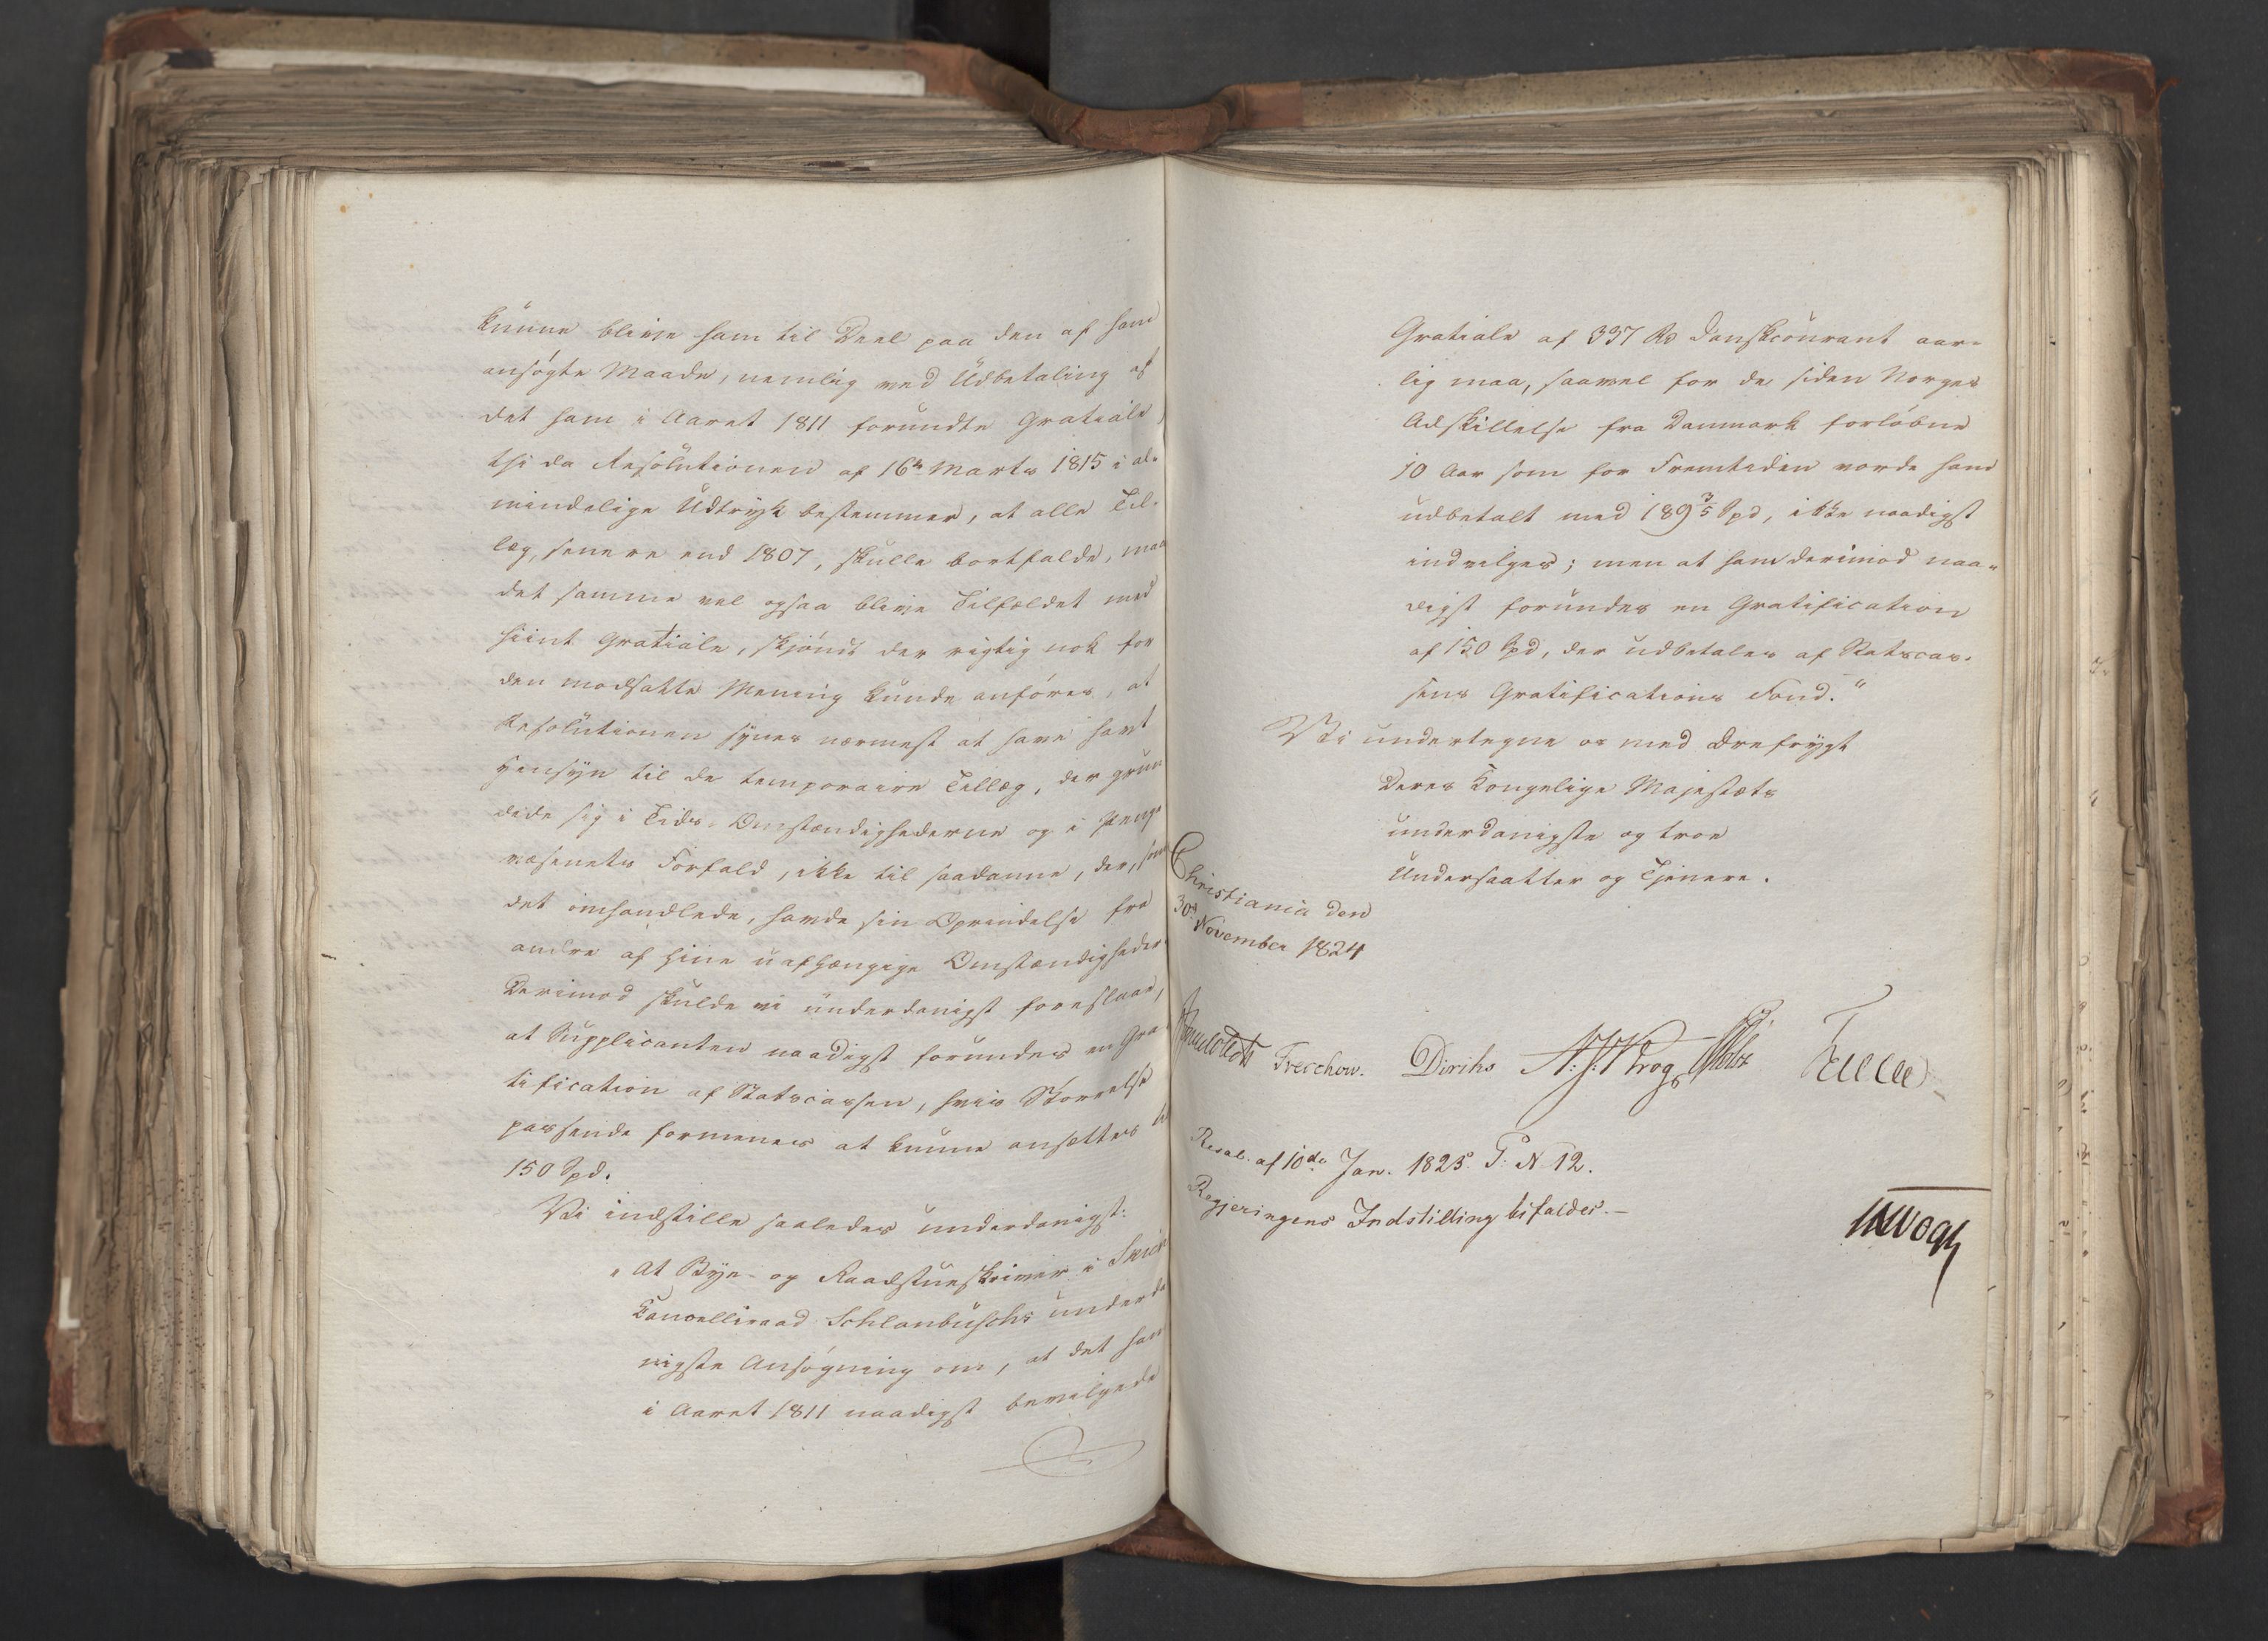 kunne blive ham til Deel paa den af ham
ansøgte Maade, nemlig ved Udbetaling af
det ham i Aaret 1811 forundte Gratiale,
thi da Resolutionen af 16de Marts 1815 i al-
mindelige Udtryk bestemmer, at alle Til-
læg, senere end 1807, skulle bortfalde, maa
det samme vel ogsaa blive Tilfældet med
hiint Gratiale, skjønt der rigtig nok for
den modsatte Mening kunde anføres, at
Resolutionen synes nærmest at have havt
Hensyn til de temporaire Tillæg, der grun
dede sig i Tids-Omstændighederne og i Penge
væsenets Forfald, ikke til saadanne, der, som
det omhandlede, havde sin Oprindelse fra
andre af hine uafhængige Omstændigheder.
Derimod skulde vi underdanigst foreslaae,
at Supplicanten naadigst forundes en Gra
tification af Statscassen, hvis Størrelse
passende formenes at kunne ansættes til
150 Spd.
Vi indstille saaledes underdanigst:
"At Bye- og Raadstueskriver i
Cancelliraad Schlanbuschs underda
nigste Ansøgning om, at det ham
i Aaret 1811 naadigst bevilgede
Gratiale af 337 Rd Danskcourant aar-
lig maa, saavel for de siden Norges
Adskillelse fra Danmark forløbne
10 Aar som for Fremtiden vorde ham
udbetalt med 189 3/5 Spd, ikke naadigst
indvilges; men at ham derimod naa-
digst forundes en Gratification
af 150 Spd, der udbetales af Statscas-
sens Gratifications Fond."
Vi undertegne os med Ærefrygt
Deres Kongelige Majestæts
underdanigste og troe
Undersaatter og Tjenere.
Christiania den
30te November 1824
Treschow. Diriks N. J. Krog
Resol. af 10de Jan. 1825. P: N 12.
Regjeringens Indstilling bifaldes. —
Vogt